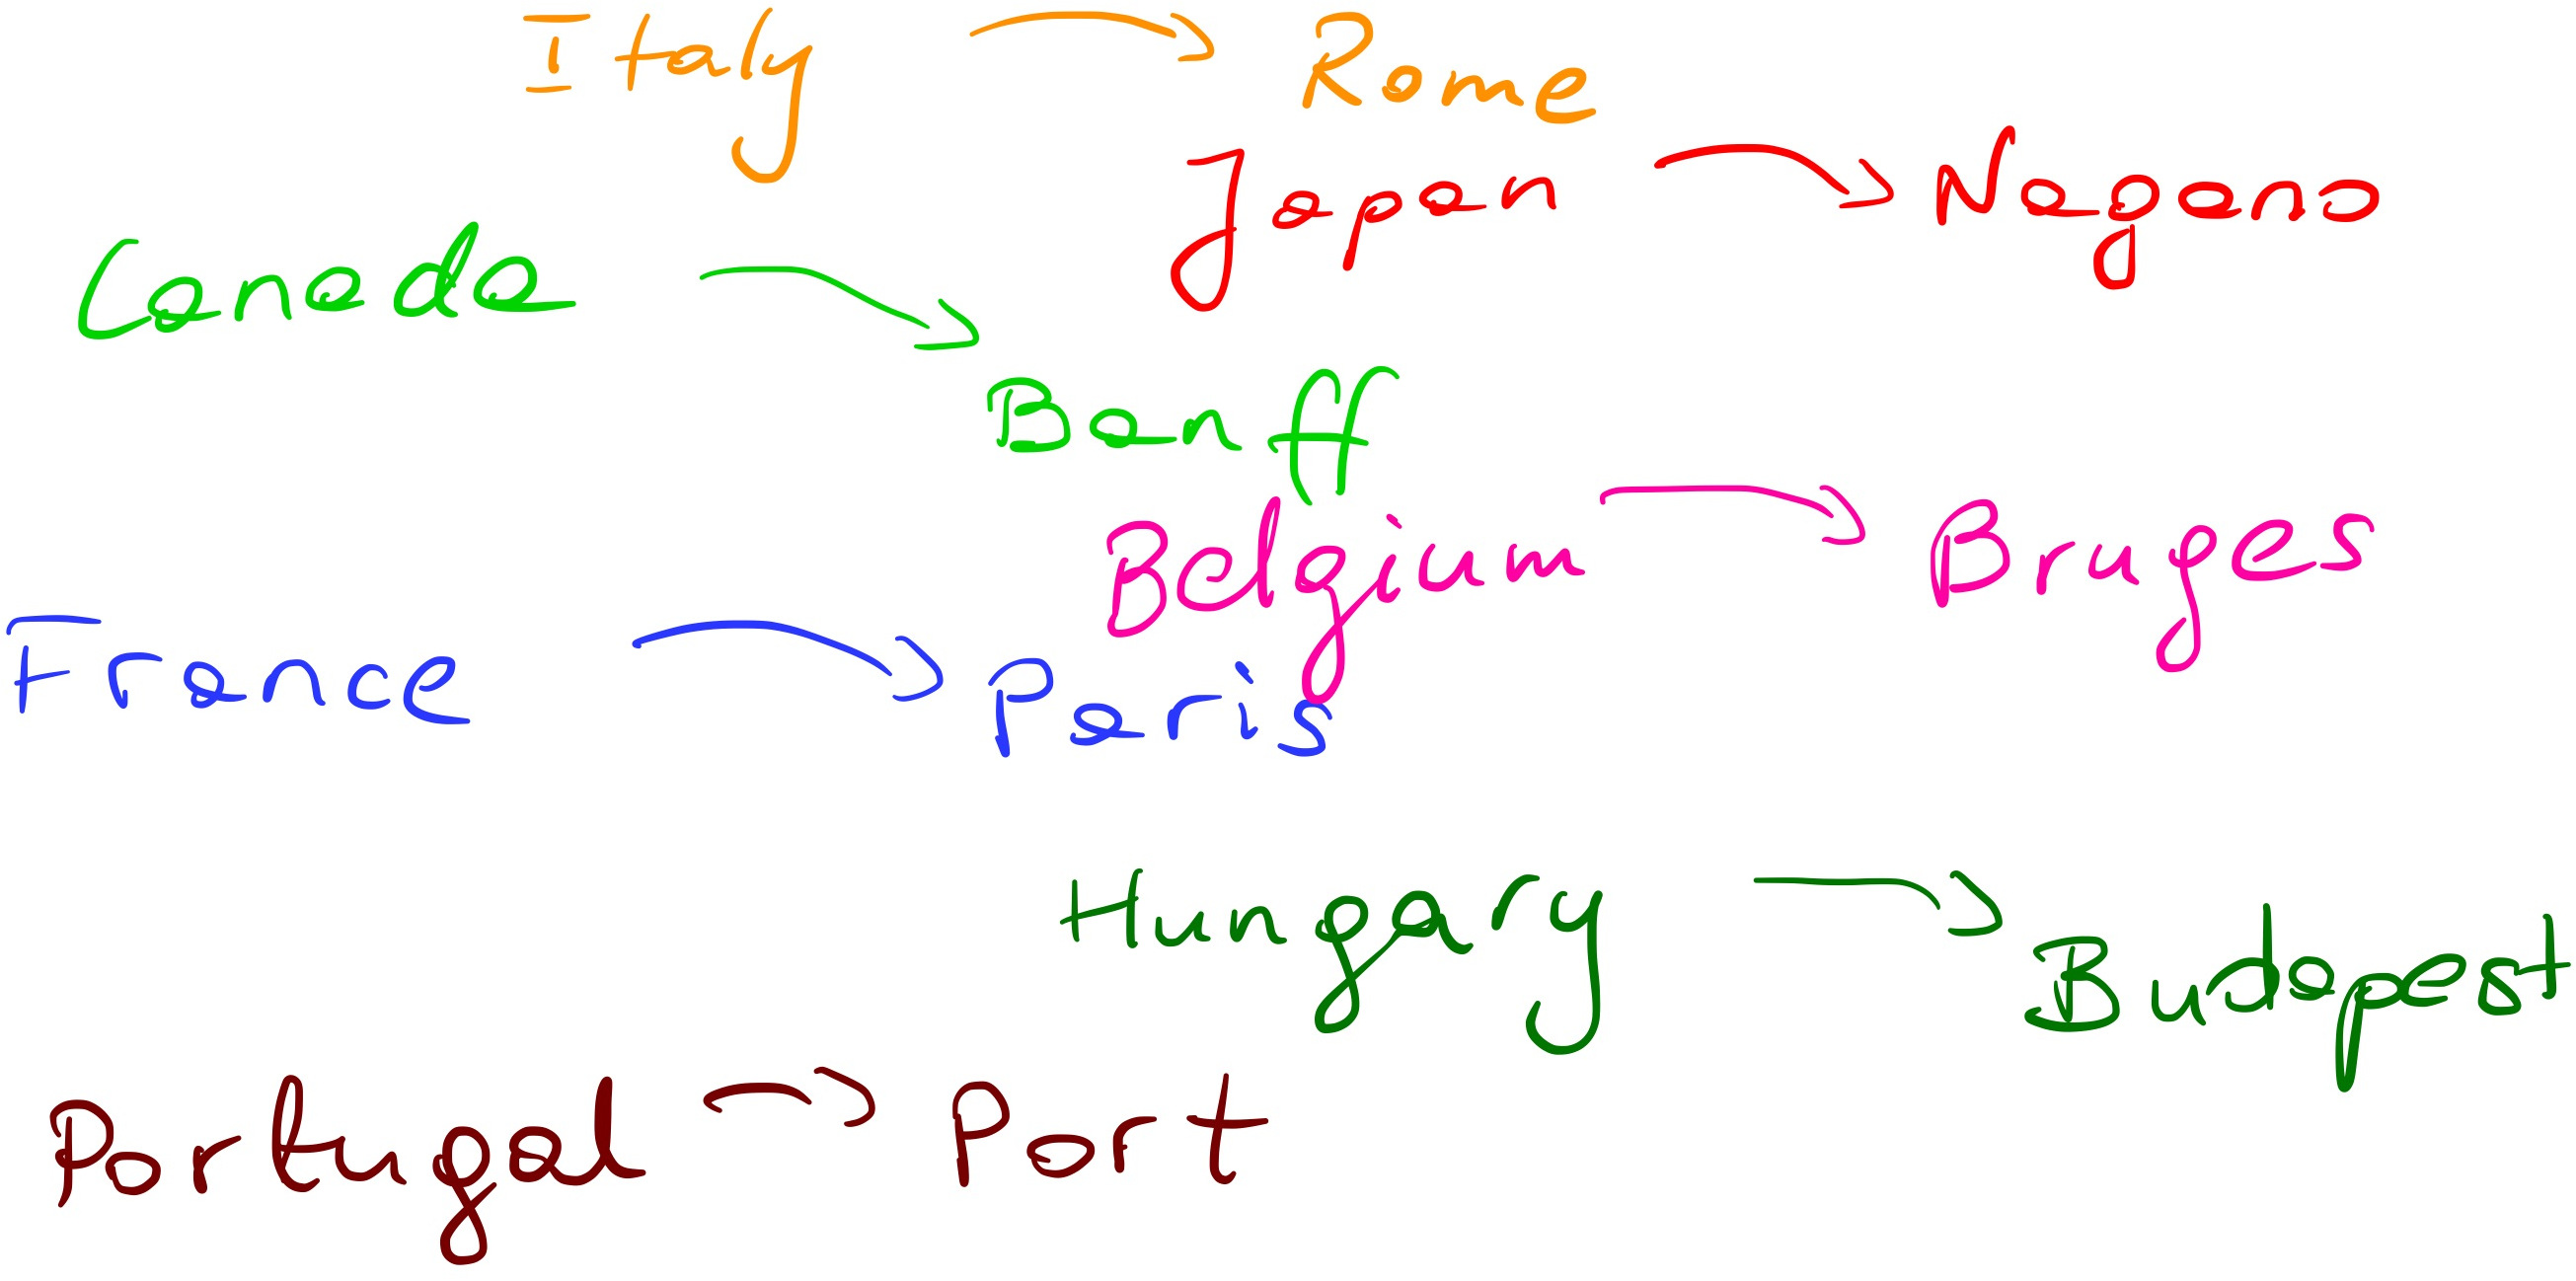 Italy → Rome
Japan → Nagano
Canada → Banff
Belgium → Bruges
France → Paris
Hungary → Budapest
Portugal → Port